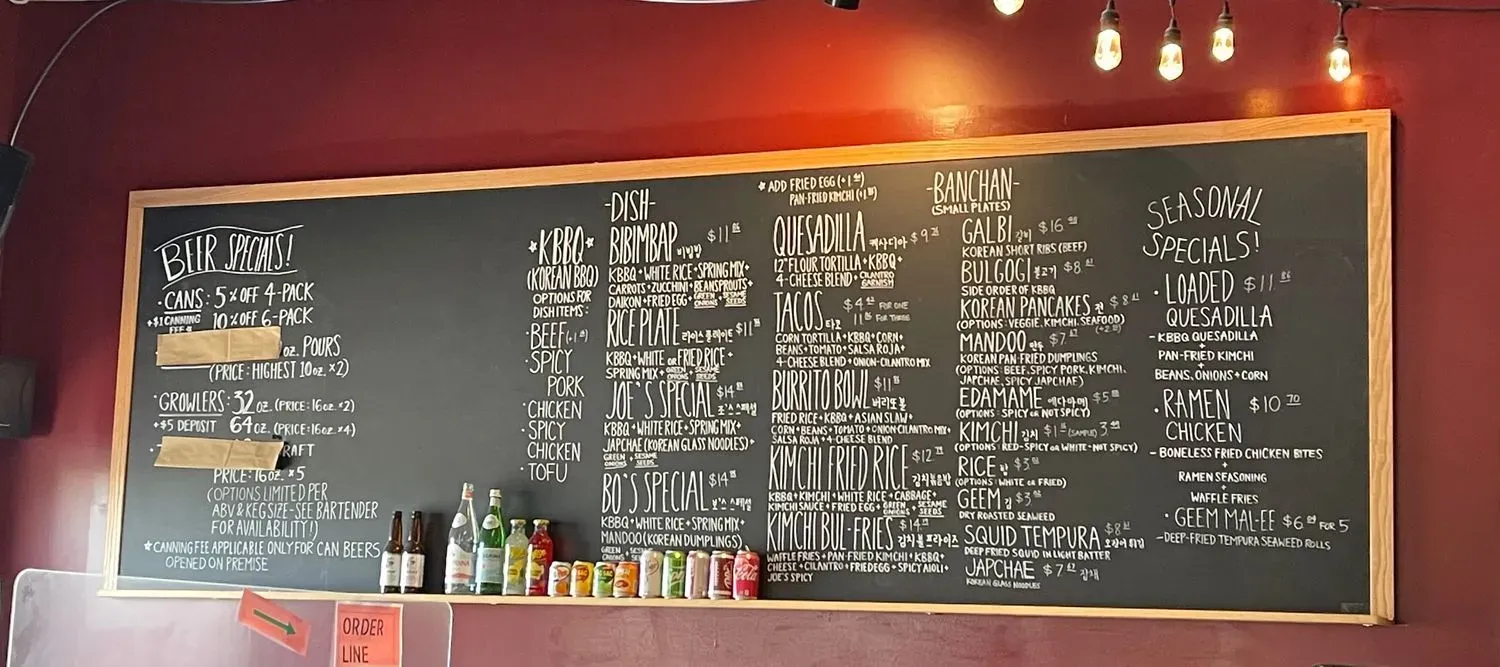 BEER SPECIALS!
· CANS: 5% OFF 4-PACK
+$1 CANNING FEE* 10% OFF 6-PACK
oz. POURS
(PRICE: HIGHEST 10oz. ×2)
· GROWLERS: 32oz. (PRICE: 16oz. ×2)
+$5 DEPOSIT 64oz. (PRICE: 16oz. ×4)
RAFT
PRICE: 16oz. ×5
(OPTIONS LIMITED PER
ABV & KEG SIZE-SEE BARTENDER
FOR AVAILABILITY!)
*CANNING FEE APPLICABLE ONLY FOR CAN BEERS
OPENED ON PREMISE
*KBBQ*
(KOREAN BBQ)
OPTIONS FOR
DISH ITEMS:
· BEEF (+1)
· SPICY
PORK
· CHICKEN
· SPICY
CHICKEN
· TOFU
-DISH-
BIBIMBAP 비빔밥 $11
KBBQ + WHITE RICE + SPRING MIX +
CARROTS + ZUCCHINI + BEANSPROUTS +
DAIKON + FRIED EGG + GREEN ONIONS + SESAME SEEDS
RICE PLATE 라이스 플레이트 $11
KBBQ + WHITE OR FRIED RICE +
SPRING MIX + GREEN ONIONS + SESAME SEEDS
JOE'S SPECIAL $14
조's 스페셜
KBBQ + WHITE RICE + SPRING MIX +
JAPCHAE (KOREAN GLASS NOODLES) +
GREEN ONIONS + SESAME SEEDS
BO'S SPECIAL $14
보's 스페셜
KBBQ + WHITE RICE + SPRING MIX +
MANDOO (KOREAN DUMPLINGS)
GREEN ONIONS + SESAME SEEDS
* ADD FRIED EGG (+1)
PAN-FRIED KIMCHI (+1)
QUESADILLA 케사디아 $9
12" FLOUR TORTILLA + KBBQ +
4-CHEESE BLEND + CILANTRO GARNISH
TACOS 타코 $4 FOR ONE
11 FOR THREE
CORN TORTILLA + KBBQ + CORN +
BEANS + TOMATO + SALSA ROJA +
4-CHEESE BLEND + ONION-CILANTRO MIX
BURRITO BOWL $11
버리또볼
FRIED RICE + KBBQ + ASIAN SLAW +
CORN + BEANS + TOMATO + ONION CILANTRO MIX +
SALSA ROJA + 4-CHEESE BLEND
KIMCHI FRIED RICE $12
김치볶음밥
KBBQ + KIMCHI + WHITE RICE + CABBAGE +
KIMCHI SAUCE + FRIED EGG + GREEN ONIONS + SESAME SEEDS
KIMCHI BUL-FRIES $14
김치불프라이즈
WAFFLE FRIES + PAN-FRIED KIMCHI + KBBQ +
CHEESE + CILANTRO + FRIED EGG + SPICY AIOLI +
JOE'S SPICY
-BANCHAN-
(SMALL PLATES)
GALBI 갈비 $16
KOREAN SHORT RIBS (BEEF)
BULGOGI 불고기 $8
SIDE ORDER OF KBBQ
KOREAN PANCAKES 전 $8
(OPTIONS: VEGGIE, KIMCHI, SEAFOOD)
MANDOO 만두 $7
KOREAN PAN-FRIED DUMPLINGS
(OPTIONS: BEEF, SPICY PORK, KIMCHI,
JAPCHAE, SPICY JAPCHAE)
EDAMAME 에다마메 $5
(OPTIONS: SPICY OR NOT SPICY)
KIMCHI 김치 $1 (SAMPLE) 3
(OPTIONS: RED-SPICY OR WHITE-NOT SPICY)
RICE 밥 $3
(OPTIONS: WHITE OR FRIED)
GEEM 김 $3
DRY ROASTED SEAWEED
SQUID TEMPURA $8
오징어 튀김
DEEP FRIED SQUID IN LIGHT BATTER
JAPCHAE $7 잡채
KOREAN GLASS NOODLES
SEASONAL
SPECIALS!
· LOADED $11.86
QUESADILLA
- KBBQ QUESADILLA
+
PAN-FRIED KIMCHI
+
BEANS, ONIONS + CORN
· RAMEN $10.70
CHICKEN
- BONELESS FRIED CHICKEN BITES
+
RAMEN SEASONING
+
WAFFLE FRIES
· GEEM MAL-EE $6 FOR 5
-DEEP-FRIED TEMPURA SEAWEED ROLLS
ORDER
LINE